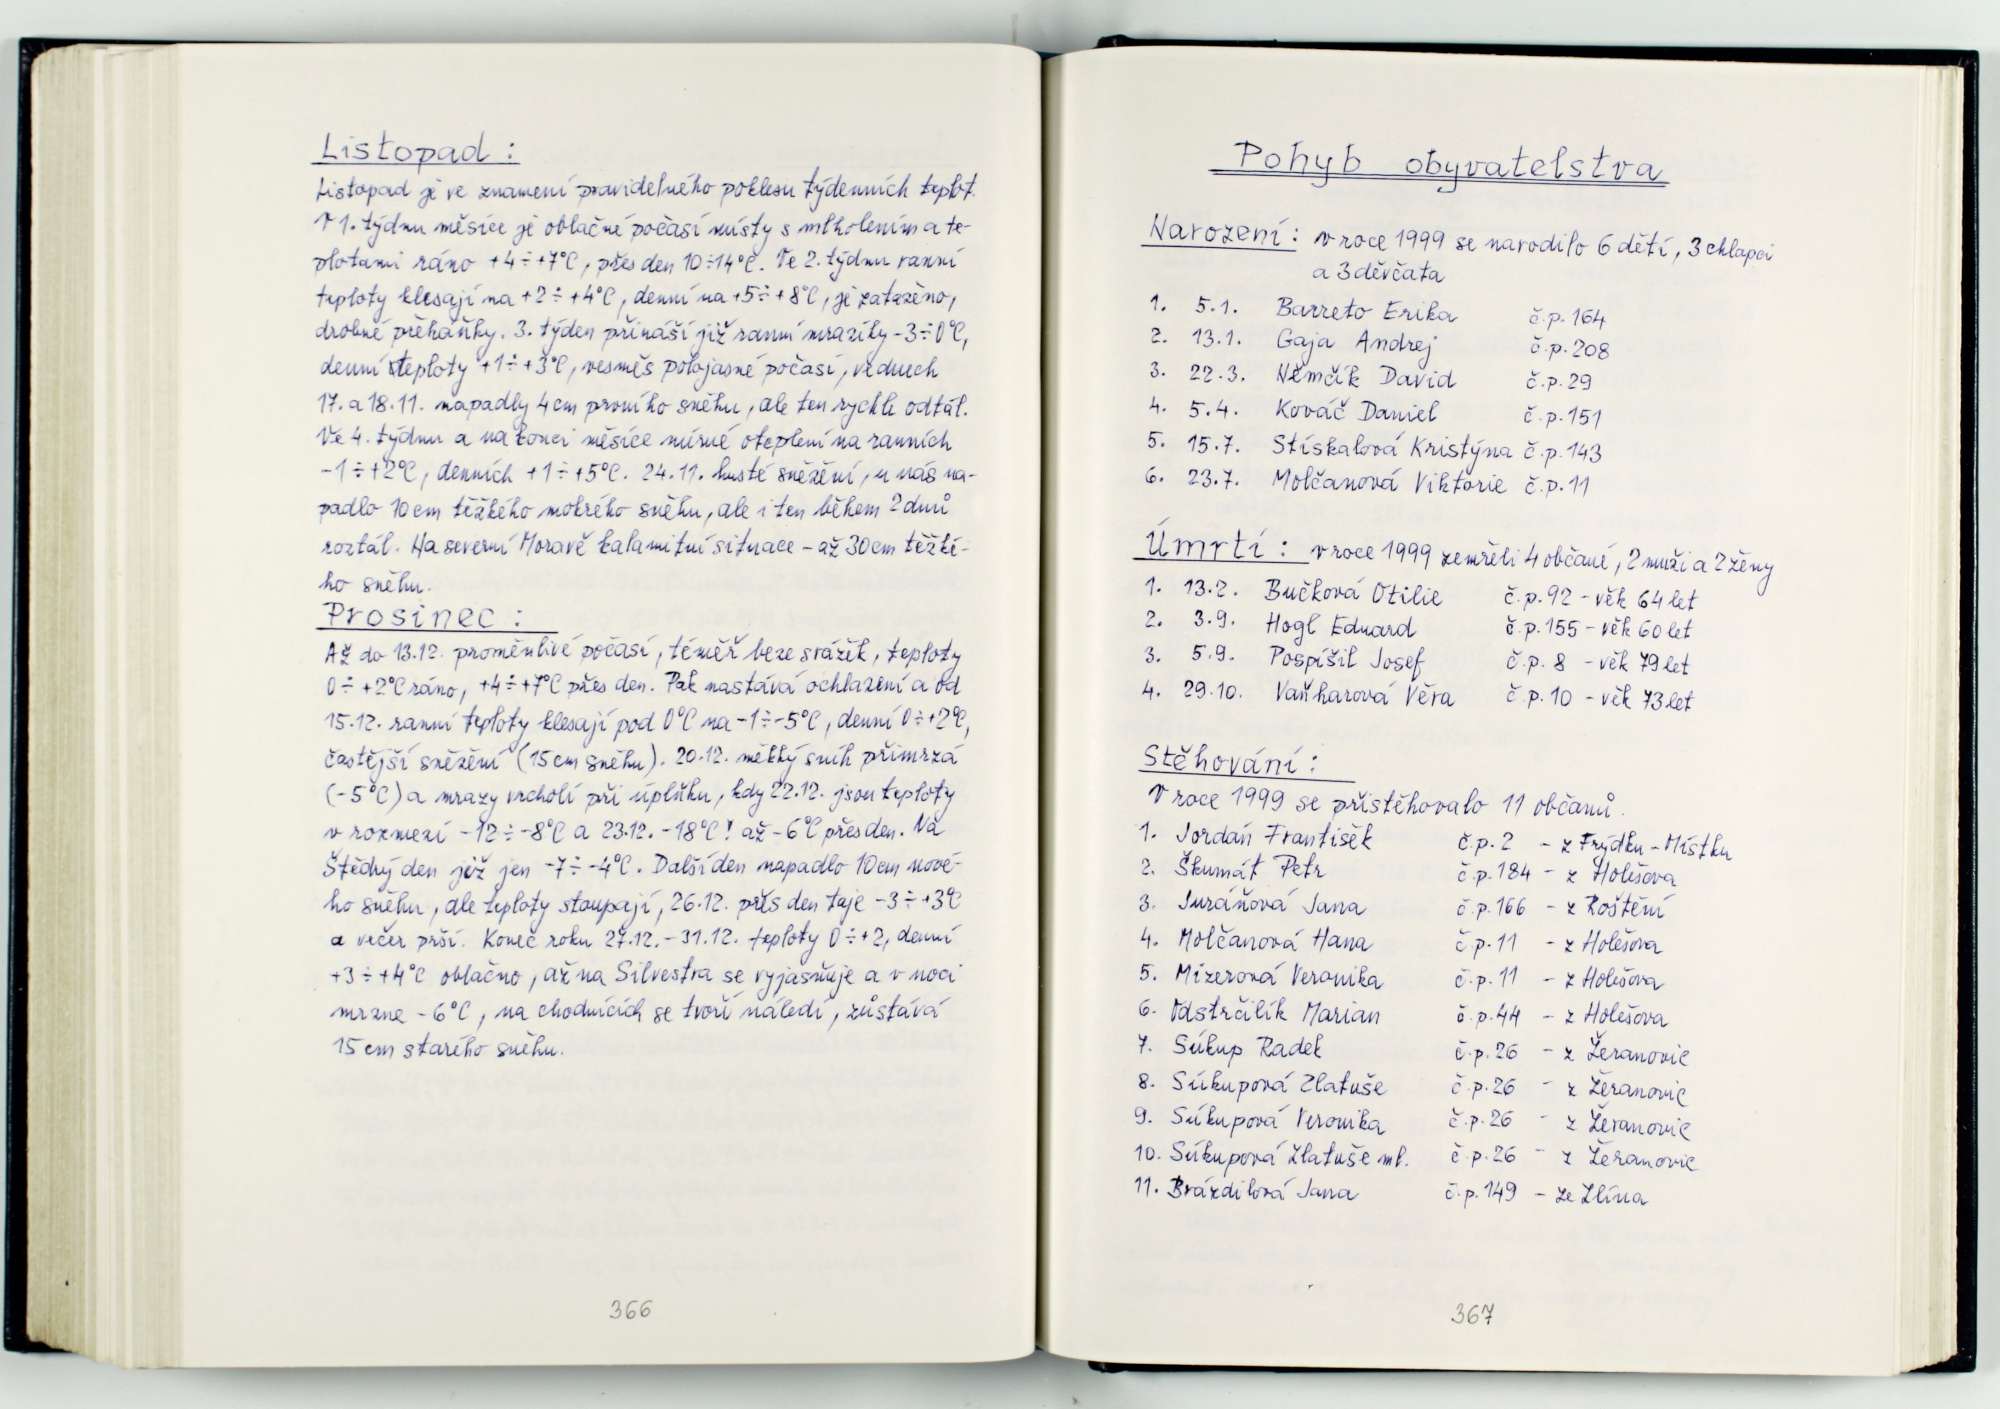 Listopad :
Listopad je ve znamení pravidelného poklesu týdenních teplot.
V 1. týdnu měsíce je oblačné počasí místy s mrholením a te-
plotami ráno +4÷+7°C, přes den 10÷14°C. Ve 2. týdnu ranní
teploty klesají na +2÷+4°C, denní na +5÷+8°C, je zataženo,
drobné přeháňky. 3. týden přináší již ranní mrazíky -3÷0°C,
denní teploty +1÷+3°C, vesměs polojasné počasí, ve dnech
17. a 18.11. napadly 4cm prvního sněhu, ale ten rychle odtál.
Ve 4. týdnu a na konci měsíce mírné oteplení na ranních
-1÷+2°C, denních +1÷+5°C. 24.11. husté sněžení, u nás na-
padlo 10cm těžkého mokrého sněhu, ale i ten během 2 dnů
roztál. Na severní Moravě kalamitní situace - až 30cm těžké-
ho sněhu.
Prosinec :
Až do 13.12. proměnlivé počasí, téměř beze srážek, teploty
0÷+2°C ráno, +4÷+7°C přes den. Pak nastává ochlazení a od
15.12. ranní teploty klesají pod 0°C na -1÷-5°C, denní 0÷+2°C,
častější sněžení (15cm sněhu). 20.12. měkký sníh přimrzá
(-5°C) a mrazy vrcholí při úplňku, kdy 22.12. jsou teploty
v rozmezí -12÷-8°C a 23.12. -18°C! až -6°C přes den. Na
Štědrý den již jen -7÷-4°C. Další den napadlo 10cm nové-
ho sněhu, ale teploty stoupají, 26.12. přes den taje -3÷+3°C
a večer prší. Konec roku 27.12.-31.12. teploty 0÷+2, denní
+3÷+4°C oblačno, až na Silvestra se vyjasňuje a v noci
mrzne -6°C, na chodnících se tvoří náledí, zůstává
15cm starého sněhu.
366
Pohyb obyvatelstva
Narození: v roce 1999 se narodilo 6 dětí, 3 chlapci
a 3 děvčata
1. 5.1. Barreto Erika č.p. 164
2. 13.1. Gaja Andrej č.p. 208
3. 22.3. Němčík David č.p. 29
4. 5.4. Kováč Daniel č.p. 151
5. 15.7. Stískalová Kristýna č.p. 143
6. 23.7. Molčanová Viktorie č.p. 11
Úmrtí : v roce 1999 zemřeli 4 občané, 2 muži a 2 ženy
1. 13.2. Bučková Otilie č.p. 92 - věk 64 let
2. 3.9. Hogl Eduard č.p. 155 - věk 60 let
3. 5.9. Pospíšil Josef č.p. 8 - věk 79 let
4. 29.10. Vaňharová Věra č.p. 10 - věk 73 let
Stěhování :
V roce 1999 se přistěhovalo 11 občanů.
1. Jordán František č.p. 2 - z Frýdku-Místku
2. Škumát Petr č.p. 184 - z Holešova
3. Juráňová Jana č.p. 166 - z Roštění
4. Molčanová Hana č.p. 11 - z Holešova
5. Mizerová Veronika č.p. 11 - z Holešova
6. Vdstrčilík Marian č.p. 44 - z Holešova
7. Súkup Radek č.p. 26 - z Žeranovic
8. Súkupová Zlatuše č.p. 26 - z Žeranovic
9. Súkupová Veronika č.p. 26 - z Žeranovic
10. Súkupová Zlatuše ml. č.p. 26 - z Žeranovic
11. Brázdilová Jana č.p. 149 - ze Zlína
367